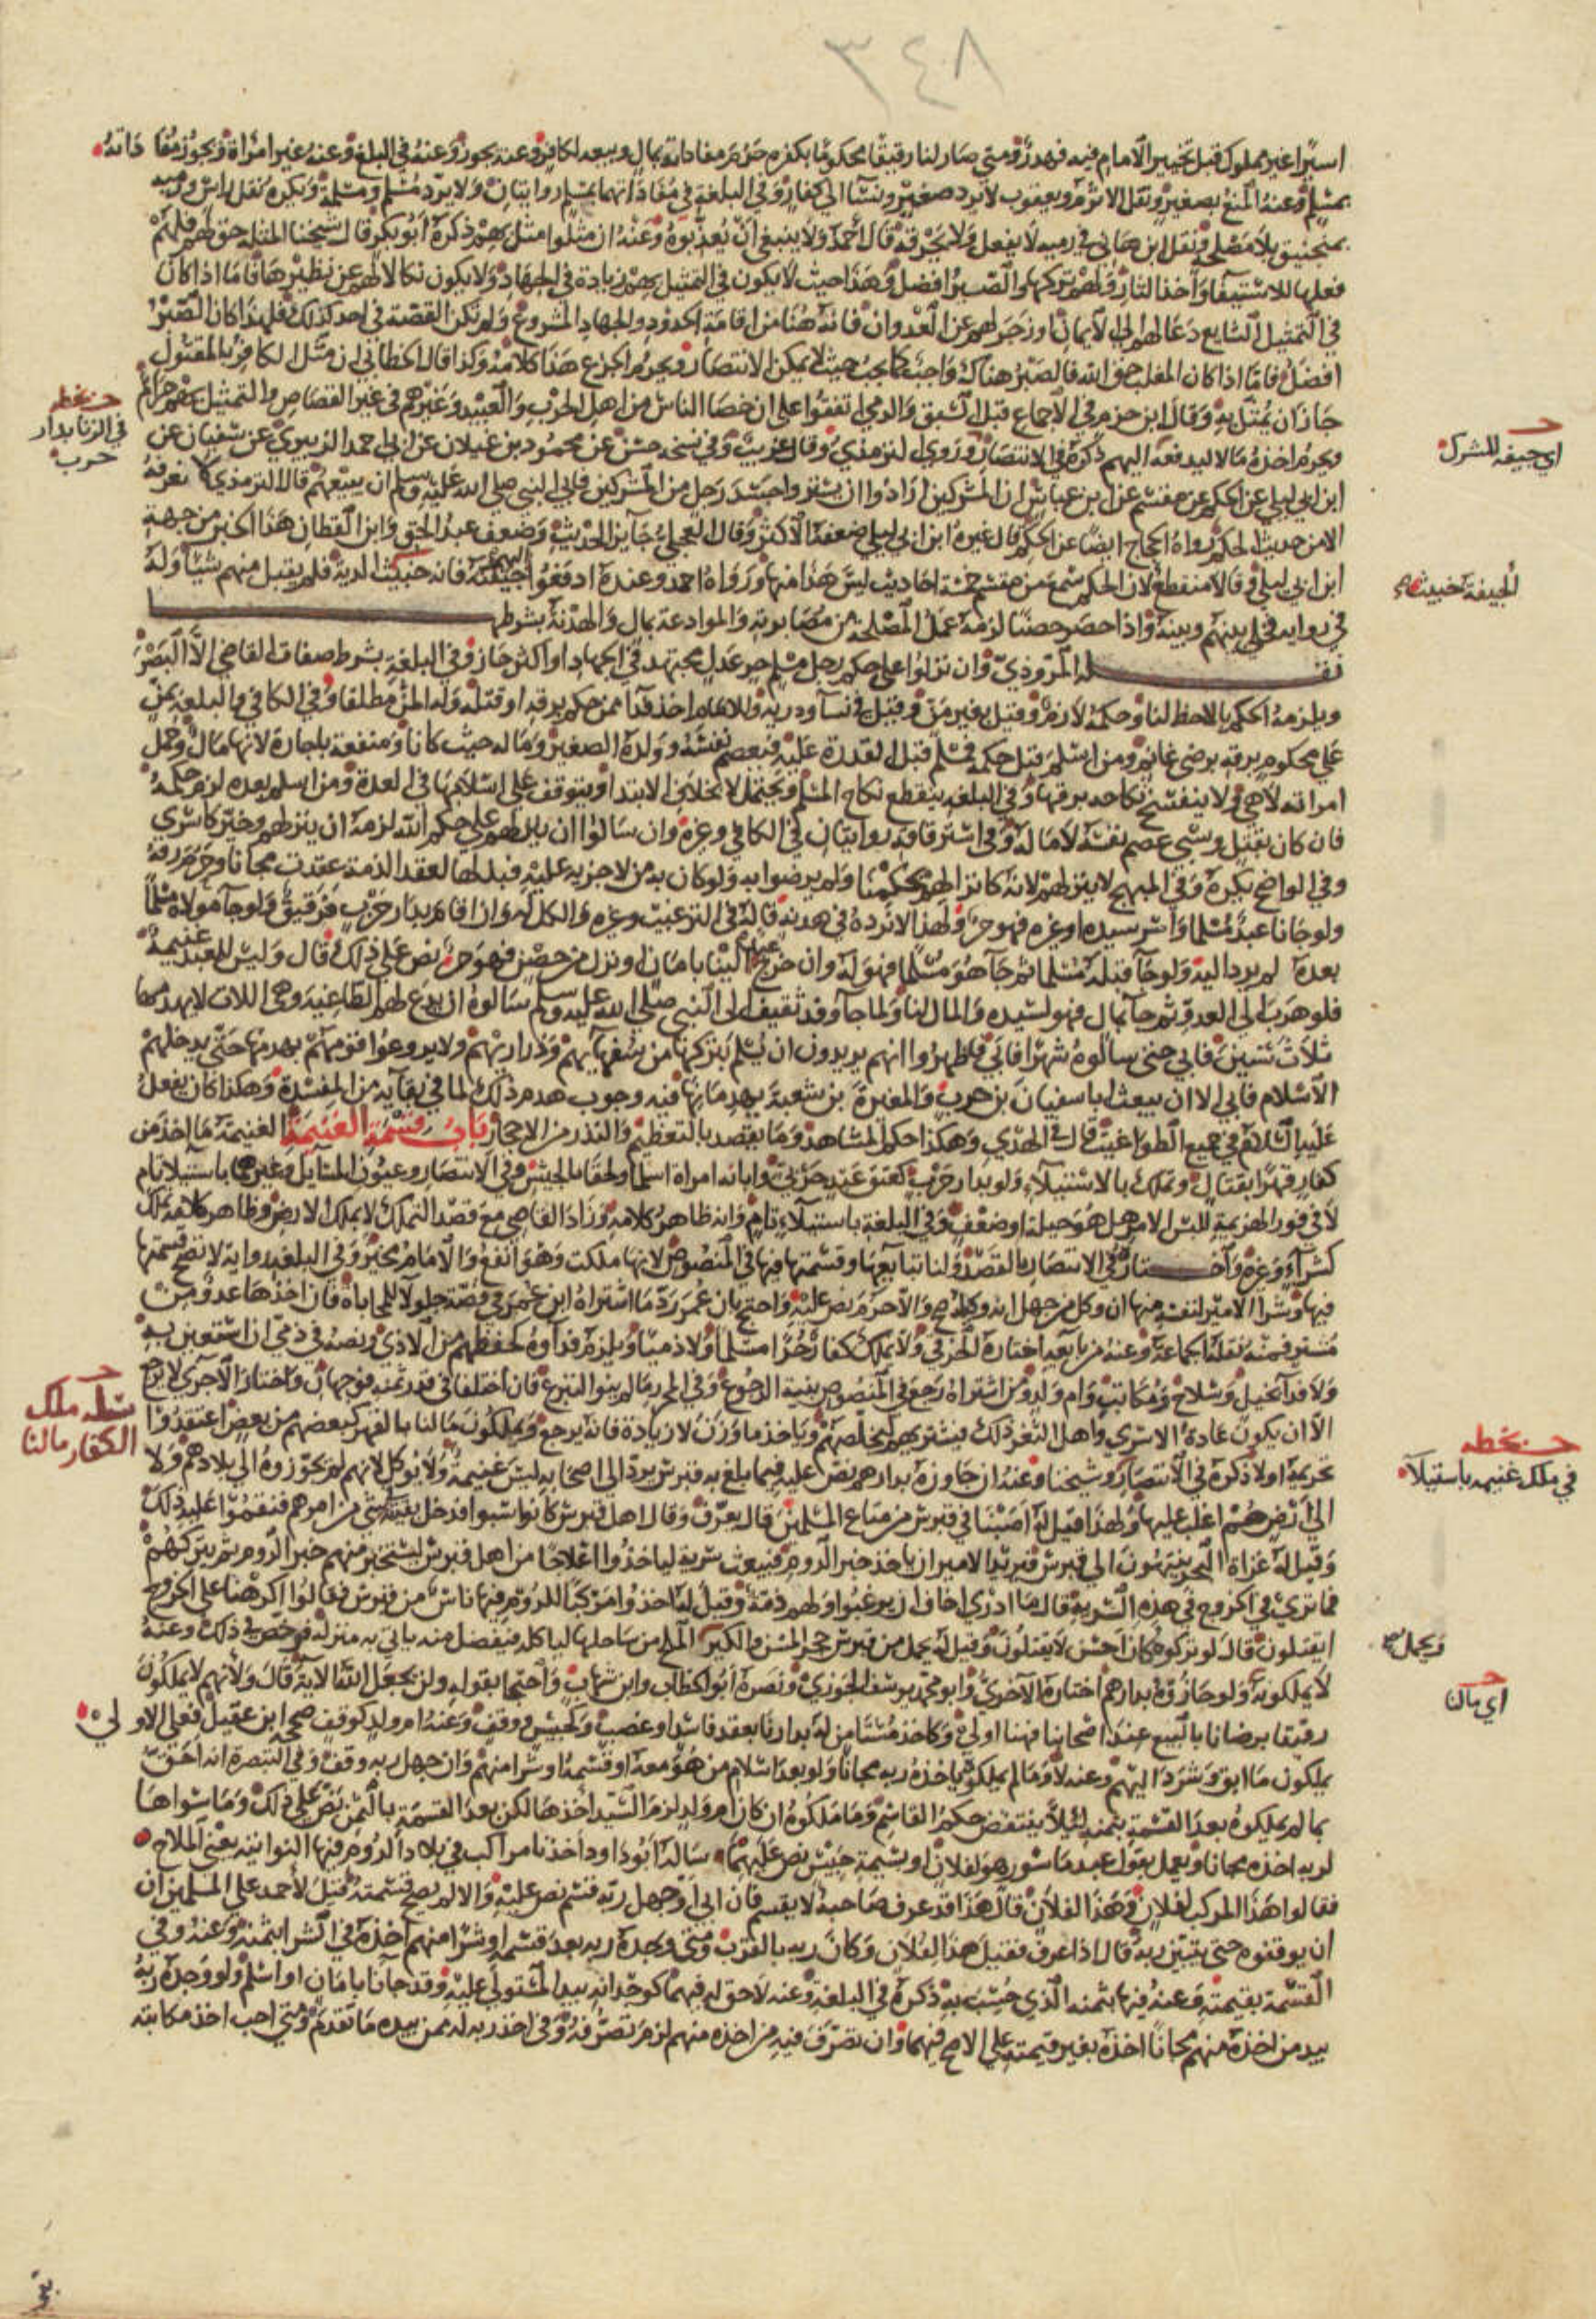 ٣٤٨
اسيرا غير مملوك قبل تخيير الامام فيه فهدر ومتى صار لنا رقيقا محكوما بكفره حرم مفاداته بمال وبيعه لكافر وعنه يجوز وعنه في البلغ وعنه غير امراة ويجوز مفاداته
بمسلم وعنه المنع بصغير ونقل الاثرم ويعقوب لا يرد صغير ونسا الى كفار وفي البلغة في مفاداتهما بمسلم روايتان ولا يرد مسلم ومسلمة ويكره نقل راس ورميه
بمنجنيق بلا مصلحة ونقل ابن هاني في رميه لا يفعل ولا يحرقه قال احمد ولا ينبغي ان يعذبوه وعنه ان مثلوا مثل بهم ذكره ابو بكر قال شيخنا المثلة حق لهم فلهم
فعلها للاستيفا واخذ الثار ولهم تركها والصبر افضل وهذا حيث لا يكون في التمثيل بهم زيادة في الجهاد ولا يكون نكالا لهم عن نظيرها فاما اذا كان
في التمثيل الشايع دعا لهم الى الايمان او زجر لهم عن العدوان فانه هنا من اقامة الحدود والجهاد المشروع ولم تكن القصة في احد كذلك فلهذا كان الصبر
افضل فاما اذا كان المغلب حق الله فالصبر هناك واجب كما يجب حيث لا يمكن الانتصار ويحرم الجزع هذا كلامه وكذا قال الخطابي ان مثل الكافر بالمقتول
جاز ان يمثل به وقال ابن حزم في الاجماع قبل السبق والرمي اتفقوا على ان خصا الناس من اهل الحرب والعبيد وغيرهم في غير القصاص والتمثيل بهم حرام
ويحرم اخذه مالا ليدفعه اليهم ذكره في الانتصار وروى الترمذي وقال غريب وفي نسخه حسن عن محمود بن غيلان عن ابي احمد الزبيري عن سفيان عن
ابن ابي ليلى عن الحكم عن مقسم عن ابن عباس ان المشركين ارادوا ان يشتروا جسد رجل من المشركين فابى النبي صلى الله عليه وسلم ان يبيعهم قال الترمذي لا نعرفه
الا من حديث الحكم ورواه الحجاج ايضا عن الحكم قال غيره ابن ابي ليلى ضعفه الاكثر وقال العجلي جايز الحديث وضعف عبد الحق وابن القطان هذا الخبر من جهة
ابن ابي ليلى وقالا منقطع لان الحكم سمع من مقسم خمسة احاديث ليس هذا منها ورواه احمد وعنده ادفعوا اليهم جيفته فانه خبيث الدية فلم يقبل منهم شيا وله
في روايه فخلى بينهم وبينه واذا حصر حصنا لزمه عمل المصلحة من مصابرته والموادعة بمال والهدنة بشرطها
نقله المروذي وان نزلوا على حكم رجل مسلم حر عدل مجتهد في الجهاد او اكثر جاز وفي البلغة بشرط صفات القاضي الا البصر
ويلزمه الحكم بالاحظ لنا وحكمه لازم وقيل بغير من وقيل في نسا وذرية وللامام اخذ فدا ممن حكم برقه او قتله وله المن مطلقا وفي الكافي والبلغة يمن
على محكوم برقه برضى غانم ومن اسلم قبل حكمه فمسلم قبل القدرة عليه فيعصم نفسه وولده الصغير وماله حيث كانا ومنفعة باجارة لانها مال وحمل
امراته لا هي ولا ينفسخ نكاحه برقها وفي البلغة ينقطع نكاح المسلم ويحتمل لا بخلاف الابتدا او يتوقف على اسلامها في العدة ومن اسلم بعده لزم حكمه
فان كان بقتل وسبي عصم نفسه لا ماله وفي استرقاقه روايتان في الكافي وغيره وان سالوا ان ينزلهم على حكم الله لزمه ان ينزلهم وخير كاسرى
وفي الواضح يكره وفي المبهج لا ينزلهم لانه كانزالهم بحكمنا ولم يرضوا به ولو كان به من لا جزية عليه فبذلها لعقد الذمة عقدت مجانا وحرم رقه
ولو جانا عبد مسلما واسر سيده او غيره فهو حر ولهذا لا نرده في هدنة قاله في الترغيب وغيره والكل له وان اقام بدار حرب فرقيق ولو جا مولاه مسلما
بعده لم يرد اليه ولو جا قبله مسلما ثم جا هو مسلما فهو له وان خرج عبد الينا بامان او نزل من حصن فهو حر نص على ذلك قال وليس للعبد غنيمة
فلو هرب الى العدو ثم جا بمال فهو لسيده والمال لنا ولما جا وفد ثقيف الى النبي صلى الله عليه وسلم سالوه ان يدع لهم الطاغية وهي اللات لا يهدمها
ثلاث سنين فابى حتى سالوه شهرا فابى واظهروا انهم يريدون ان يسلم بتركها من سفهايهم وذراريهم ولا يروعوا قومهم بهدمها حتى يدخلهم
الاسلام فابى الا ان يبعث ابا سفيان بن حرب والمغيرة بن شعبة يهدمانها فيه وجوب هدم ذلك لما في بقايه من المفسدة وهكذا كان يفعل
عليه السلام في جميع الطواغيت قال في الهدي وهكذا حكم المشاهد وما يقصد بالتعظيم والنذر من الاحجار باب قسمة الغنيمة الغنيمة ما اخذ من
كفار قهرا بقتال وتملك بالاستيلاء ولو بدار حرب كعتق عبد حربي وابانة امراة اسلما ولحقا بالجيش وفي الانتصار وعيون المسايل وغيرهما باستيلا تام
لا في فور الهزيمة للبس الامر هل هو حيلة او ضعف وفي البلغة باستيلاء تام وانه ظاهر كلامه وزاد القاضي مع قصد التملك لا بملك الارض وظاهر كلامه تملك
كشراء وغيره واختاره في الانتصار بالقصد ولنا تبايعها وقسمتها فيها في المنصوص لانها ملكت وهو انفع والامام مخير وفي البلغة رواية لا تصح قسمتها
فيها وشرا الامير لنفسه منها ان وكل من جهل انه وكيله صح والا حرم نص عليه واحتج بان عمر رد ما اشتراه ابن عمر في قصة جلولا للمحاباة فان اخذها عدو من
مشتر فمنه نقله الجماعة وعنه من بايعه اختاره الخرقي ولا يملك كفار حرا مسلما ولا ذميا ويلزم فداوه لحفظهم من الاذى ونصه في ذمي ان استعين به
ولا فدا بخيل وسلاح ومكاتب وام ولد ومن اشتراه رجع في المنصوص بنية الرجوع وفي المحرر ما لم ينو التبرع فان اختلفا في قدر ثمنه فوجهان واختار الآجري لا يرجع
الا ان يكون عادة الاسرى واهل الثغر ذلك فيشتريهم ليخلصهم وياخذ ما وزن لا زيادة فانه يرجع ويملكون مالنا بالقهر كبعضهم من بعض اعتقدوا
تحريمه اولا ذكره في الانتصار وشيخنا وعنه ان جاوزه بدارهم نص عليه فيما بلغ به قبرس يرد الى اصحابه ليس غنيمة ولا يوكل لانهم لم يحوزوه الى بلادهم ولا
الى ارض هم اغلب عليها ولهذا قيل له اصبنا في قبرس من متاع المسلمين قال يعرف وقال اهل قبرس كانوا سبوا فدخل بقيته شي من امرهم فنقموا عليه ذلك
وقيل له غزاة البحر ينتهون الى قبرس فيريد الامير ان ياخذ خبر الروم فيبعث سرية لياخذوا اعلاجا من اهل قبرس ليستخبر منهم خبر الروم ثم يتركهم
فما ترى في الخروج في هذه السرية قال ما ادري اخاف ان يرعبوا ولهم ذمة وقيل له اخذوا مركبا للروم فيها ناس من قبرس فقالوا اكرهنا على الخروج
ايقتلون قال لو تركوه كان احسن لا يقتلون وقيل له يحمل من قبرس حجر المسن والكبير الملح من ساحلها لياكله فيفضل منه ياتي به منزله فرخص في ذلك وعنه
لا يملكونه ولو حازوه بدارهم اختاره الآجري وابو محمد يوسف الجوزي ونصره ابو الخطاب وابن شهاب واحتجا بقوله ولن يجعل الله الاية قال ولانهم لا يملكون
رقيقا برضانا بالبيع عند اصحابنا فهنا اولى وكاخذ مستامن له بدارنا بعقد فاسد او غصب وكحبيس ووقف وعنه ام ولد كوقف صححه ابن عقيل فعلى الاولى
يملكون ما ابق وشرد اليهم وعنه لا وما لم يملكوه ياخذه ربه مجانا ولو بعد اسلام من هو معه او قسمه او شرا منهم وان جهل ربه وقف وفي التبصرة انه احق
بما لم يملكوه بعد القسمة بثمنه ليلا ينتقض حكم القاسم وما ملكوه ان كان ام ولد لزم السيد اخذها لكن بعد القسمة بالثمن نص على ذلك وما سواها
لربه اخذه مجانا ويعمل بقول عبد ماسور هو لفلان او بسمة حبيس نص عليهما ساله ابو داود اخذنا مراكب في بلاد الروم فيها النواتية يعني الملاح
فقالوا هذا المركب لفلان وهذا لفلان قال هذا قد عرف صاحبه لا يقسم فان ابى او جهل ربه قسم نص عليه والا لم يصح قسمته قيل لاحمد على المسلمين ان
ان يوقفوه حتى يتبين ربه قال اذا عرف فقيل هذا لفلان وكان ربه بالقرب ومتى وجده ربه بعد قسمه او شرا منهم اخذه في الشرا بثمنه وعنه وفي
القسمة بقيمته وعنه فيها بثمنه الذي حسب به ذكره في البلغة وعنه لا حق له فيهما كوجدانه بيد المستولي عليه وقد جآنا بامان او اسلم ولو وجده ربه
بيد من اخذه منهم مجانا اخذه بغير قيمته على الاصح فيهما وان تصرف فيه من اخذه منهم لزم تصرفه وفي اخذ ربه له ممن بيده ما تقدم ومتى احب اخذ مكاتبته
بخطه
في الزنا بدار
حرب
اي جيفه للشرك
الجيفة خبيثة
مسله ملك
الكفار مالنا
بخطه
في ملك غنيمه باستيلآ
ويحمل
اي مالنا